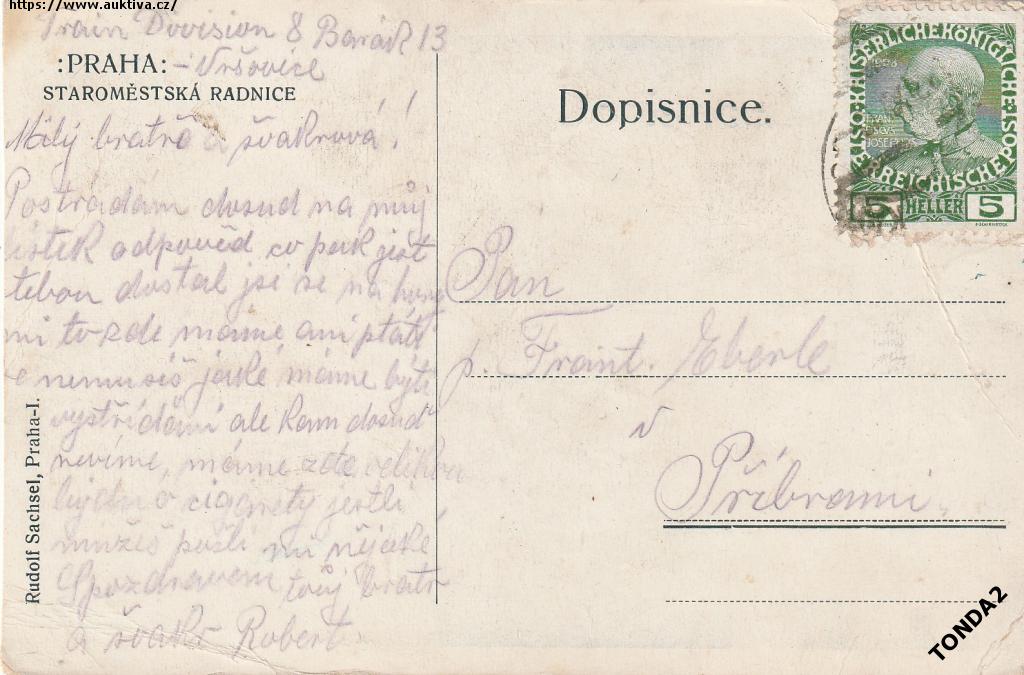 https://www.auktiva.cz/
Train Division 8 Barák 13
:PRAHA: - Vršovice
STAROMĚSTSKÁ RADNICE
Milý bratře a švakrová!
Postrádám dosud na můj
lístek odpověd co pak jest
tebou dostal jsi se na
mi to zde máme ani ptáti
se nemusíš jaké máme býti
vystřídáni ale kam dosud
nevíme, máme zde velikou
bídu o cigarety jestli
můžeš pošli mi nějaké
S pozdravem tvůj bratr
a švakr Robert.
Rudolf Sachsel, Praha-I.
Dopisnice.
KAISERLICHEKÖNIGLICHE
OSTERREICHISCHE POST
1908
FRAN
CISCUS
JOSEPHUS
5 HELLER 5
Pan
p. Frant. Eberle
v
Příbrami.
TONDA2